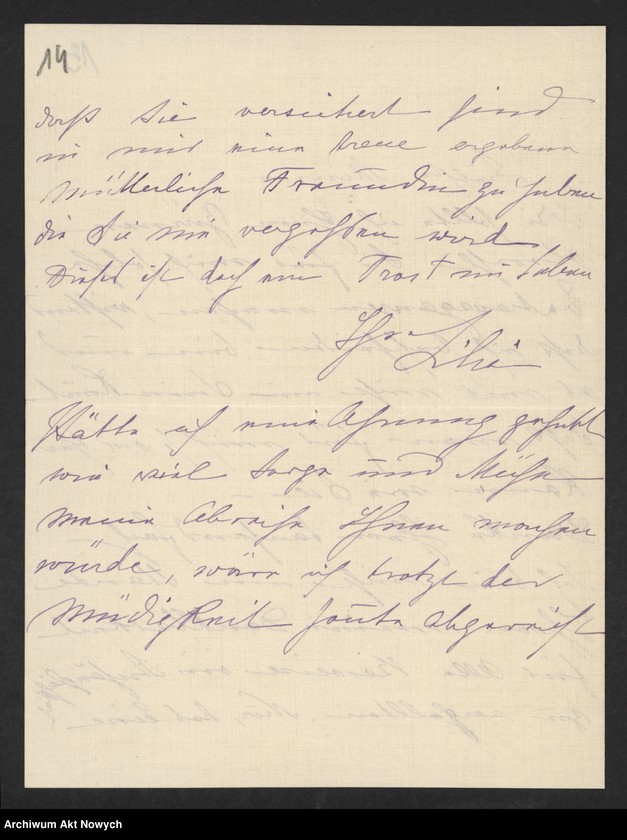 14
daß Sie versichert sind
in mir eine treue ergebene
Mütterliche Freundin zu haben
die Sie nie vergessen wird
Dieß ist doch ein Trost im Leben
Ihre Lilli
Hätte ich eine Ahnung gehabt
wie viel Sorge und Mühe
meine Abreise Ihnen machen
würde, wäre ich trotz der
Müdigkeit heute abgereist
Archiwum Akt Nowych